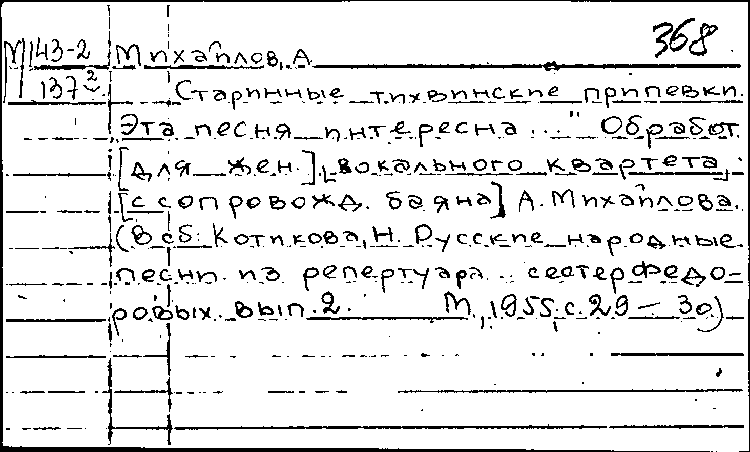 368
М 43-2 Михайлов, А.
137²
Старинные тихвинские припевки.
„Эта песня интересна..." Обработ.
[для жен.] вокального квартета,
[с сопровожд. баяна] А. Михайлова.
(В сб: Котикова, Н. Русские народные
песни из репертуара .. сестер Федо-
ровых. вып. 2. М, 1955, с. 29 - 30)